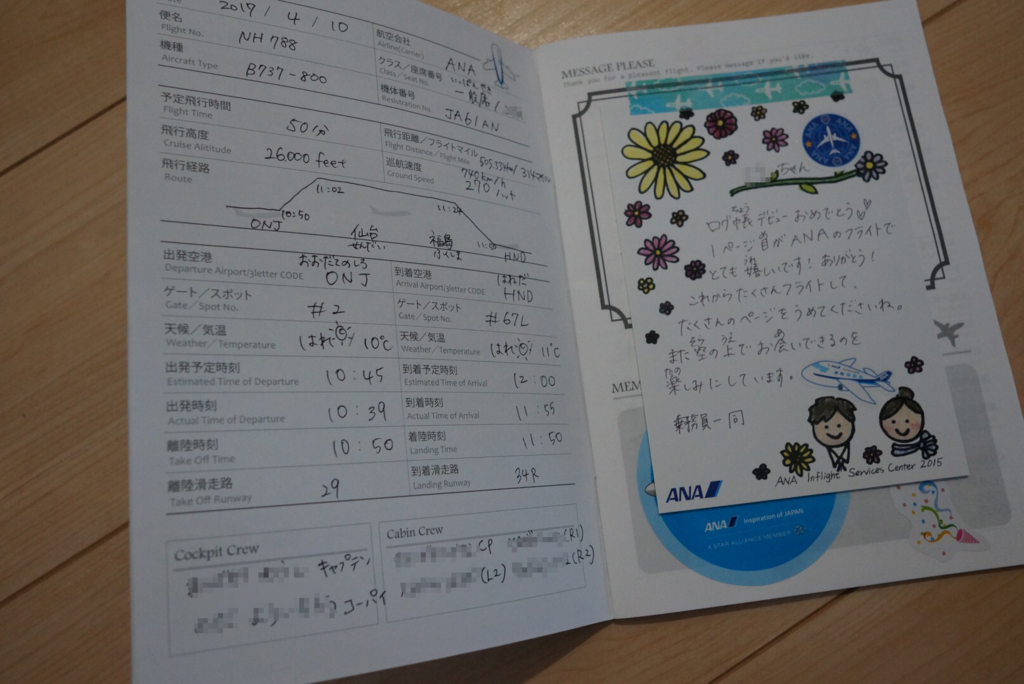 2017 / 4 / 10
便名
Flight No.
NH 788
航空会社
Airline(Carrier)
ANA
機種
Aircraft Type
B737-800
クラス／座席番号
Class／Seat No.
いっぱんせき
一般席 /
機体番号
Registration No.
JA61AN
予定飛行時間
Flight Time
50分
飛行距離／フライトマイル
Flight Distance／Flight Mile
飛行高度
Cruise Altitude
26000 feet
巡航速度
Ground Speed
740km/h
270ノット
飛行経路
Route
11:02
10:50
ONJ
仙台
せんだい
福島
ふくしま
HND
出発空港
Departure Airport/3letter CODE
おおだてのしろ
ONJ
到着空港
Arrival Airport/3letter CODE
はねだ
HND
ゲート／スポット
Gate／Spot No.
#2
ゲート／スポット
Gate／Spot No.
#67L
天候／気温
Weather／Temperature
はれ 10℃
天候／気温
Weather／Temperature
はれ 11℃
出発予定時刻
Estimated Time of Departure
10:45
到着予定時刻
Estimated Time of Arrival
12:00
出発時刻
Actual Time of Departure
10:39
到着時刻
Actual Time of Arrival
11:55
離陸時刻
Take Off Time
10:50
着陸時刻
Landing Time
11:50
離陸滑走路
Take Off Runway
29
到着滑走路
Landing Runway
34R
Cockpit Crew
キャプテン
コーパイ
Cabin Crew
CP
(R1)
(L2)
(R2)
MESSAGE PLEASE
Thank you for a pleasant flight. Please message if you'd like.
ANA
ちゃん
ちょう
ログ帳デビューおめでとう
1ページ目がANAのフライトで
とても嬉しいです！ありがとう！
これからたくさんフライトして、
たくさんのページをうめてくださいね。
そら うえ あ
また空の上でお会いできるのを
たの
楽しみにしています。
乗務員一同
ANA Inflight Services Center 2015
ANA
MEM
ANA Inspiration of JAPAN
A STAR ALLIANCE MEMBER